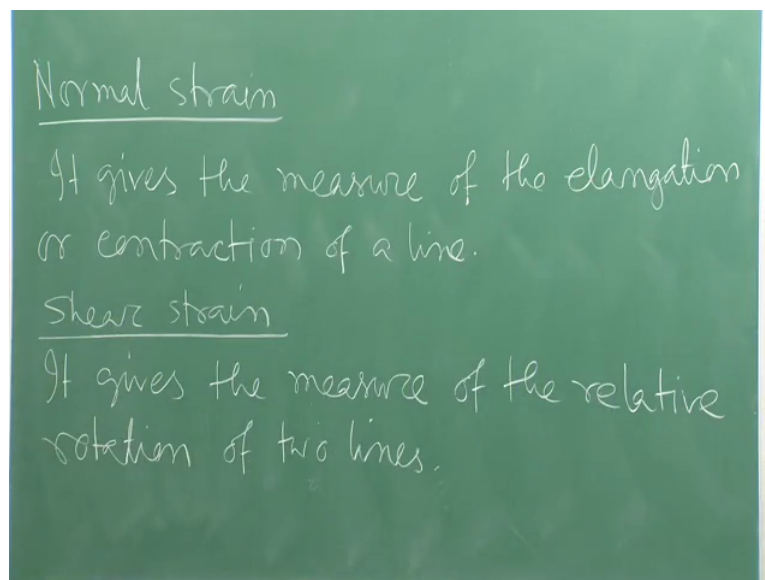 Normal strain
It gives the measure of the elangation
or contraction of a line.
Shear strain
It gives the measure of the relative
rotation of two lines.